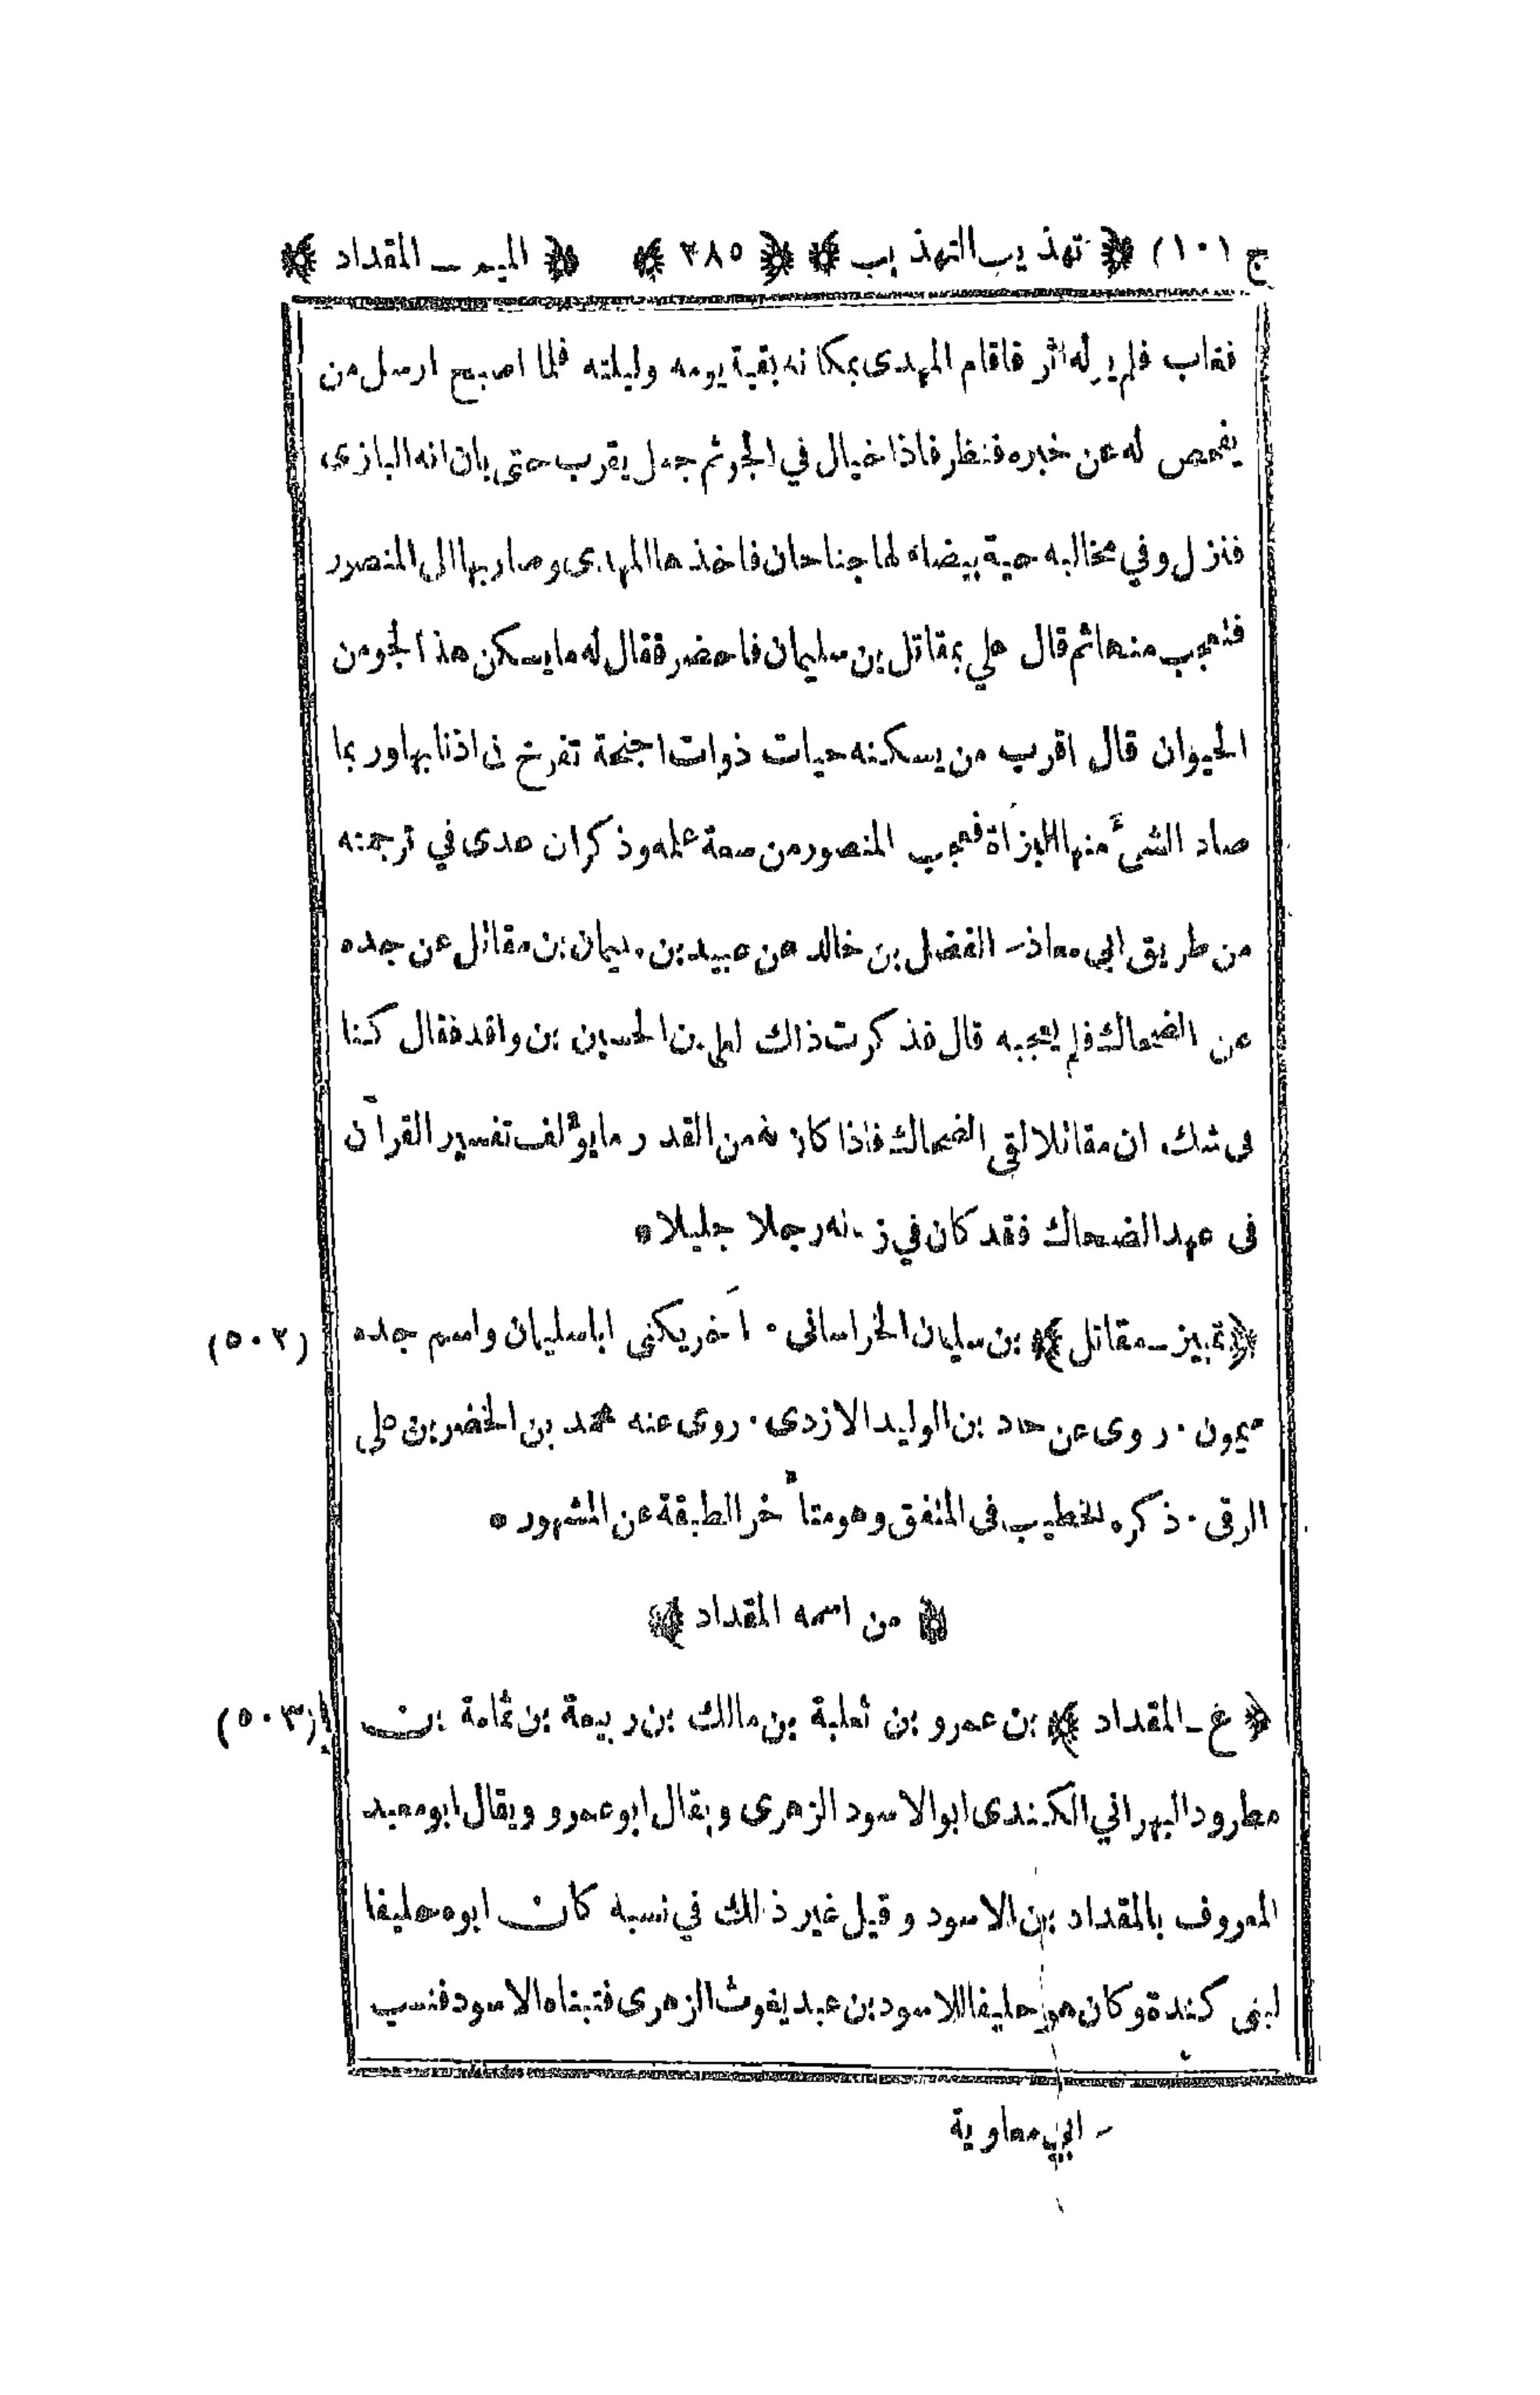 ج (١٠) ﴿ تهذيب التهذيب ﴾ ﴿ ٢٨٥ ﴾ ﴿ الميم ــ المقداد ﴾
فغاب فلم ير له اثر فاقام المهدى بمكانه بقية يومه وليلته فلما اصبح ارسل من
يفحص له عن خبره فنظر فاذا خيال في الجو ثم جعل يقرب حتى بان انه البازى
فنزل وفي مخالبه حية بيضاء لها جناحان فاخذها المهدى وصار بها الى المنصور
فتعجب منها ثم قال علي بمقاتل بن سليمان فاحضر فقال له ما يسكن هذا الجو من
الحيوان قال اقرب من يسكنه حيات ذوات اجنحة تفرخ فى اذنابها وربما
صاد الشئ منها البزاة فعجب المنصور من سعة علمه وذكر ابن عدى في ترجمته
من طريق ابى معاذ ـ الفضل بن خالد عن عبيد بن سليمان بن مقاتل عن جده
عن الضحاك فلم يعجبه قال فذكرت ذلك لعلي بن الحسين بن واقد فقال كنا
فى شك ان مقاتلا لقى الضحاك فاذا كان له من القدر ما يؤلف تفسير القرآن
فى عهد الضحاك فقد كان في زمانه رجلا جليلا ٠
﴿ تمييز ــ مقاتل ﴾ بن سليمان الخراسانى ٠ آخر يكنى ابا سليمان واسم جده (٥٠٢)
ميمون ٠ روى عن حماد بن الوليد الازدى ٠ روى عنه محمد بن الخضر بن علي
الرقى ٠ ذكره الخطيب فى المتفق وهو متأخر الطبقة عن المشهور ٠
﴿ من اسمه المقداد ﴾
﴿ ع ــ المقداد ﴾ بن عمرو بن ثعلبة بن مالك بن ربيعة بن ثمامة بن (٥٠٣)
مطرود البهراني الكندى ابو الاسود الزهرى ويقال ابو عمرو ويقال ابو معبد
المعروف بالمقداد بن الاسود وقيل غير ذلك في نسبه كان ابوه حليفا
لبنى كندة وكان هو حليفا للاسود بن عبد يغوث الزهرى فتبناه الاسود فنسب
ـ ابى معاوية